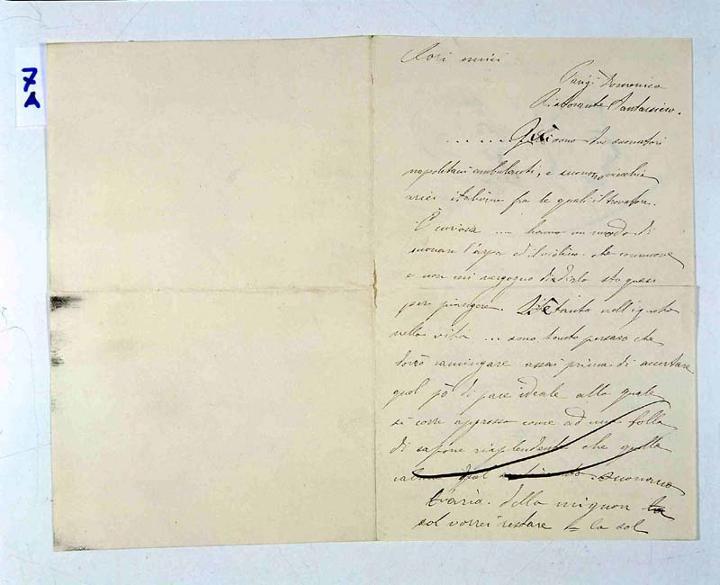 7A
Cari miei
Parigi Domenica
Ristorante Fantaisie.
.... Qui sono due suonatori
napoletani ambulanti, e suonano vecchie
ariei italiane fra le quali il trovatore.
È curiosa ... hanno un modo di
suonare l'arpa ed il violino che commuove
e non mi vergogno di dirlo sto quasi
per piangere. Vi è tanto nell'ignoto
nella vita ... sono tanto persuaso che
dovrò ramingare assai prima di accertare
quel pò di pace ideale alla quale
si corre appresso come ad una bolla
di sapone risplendente che quella
suonano
l'aria della mignon la
sol vorrei restare